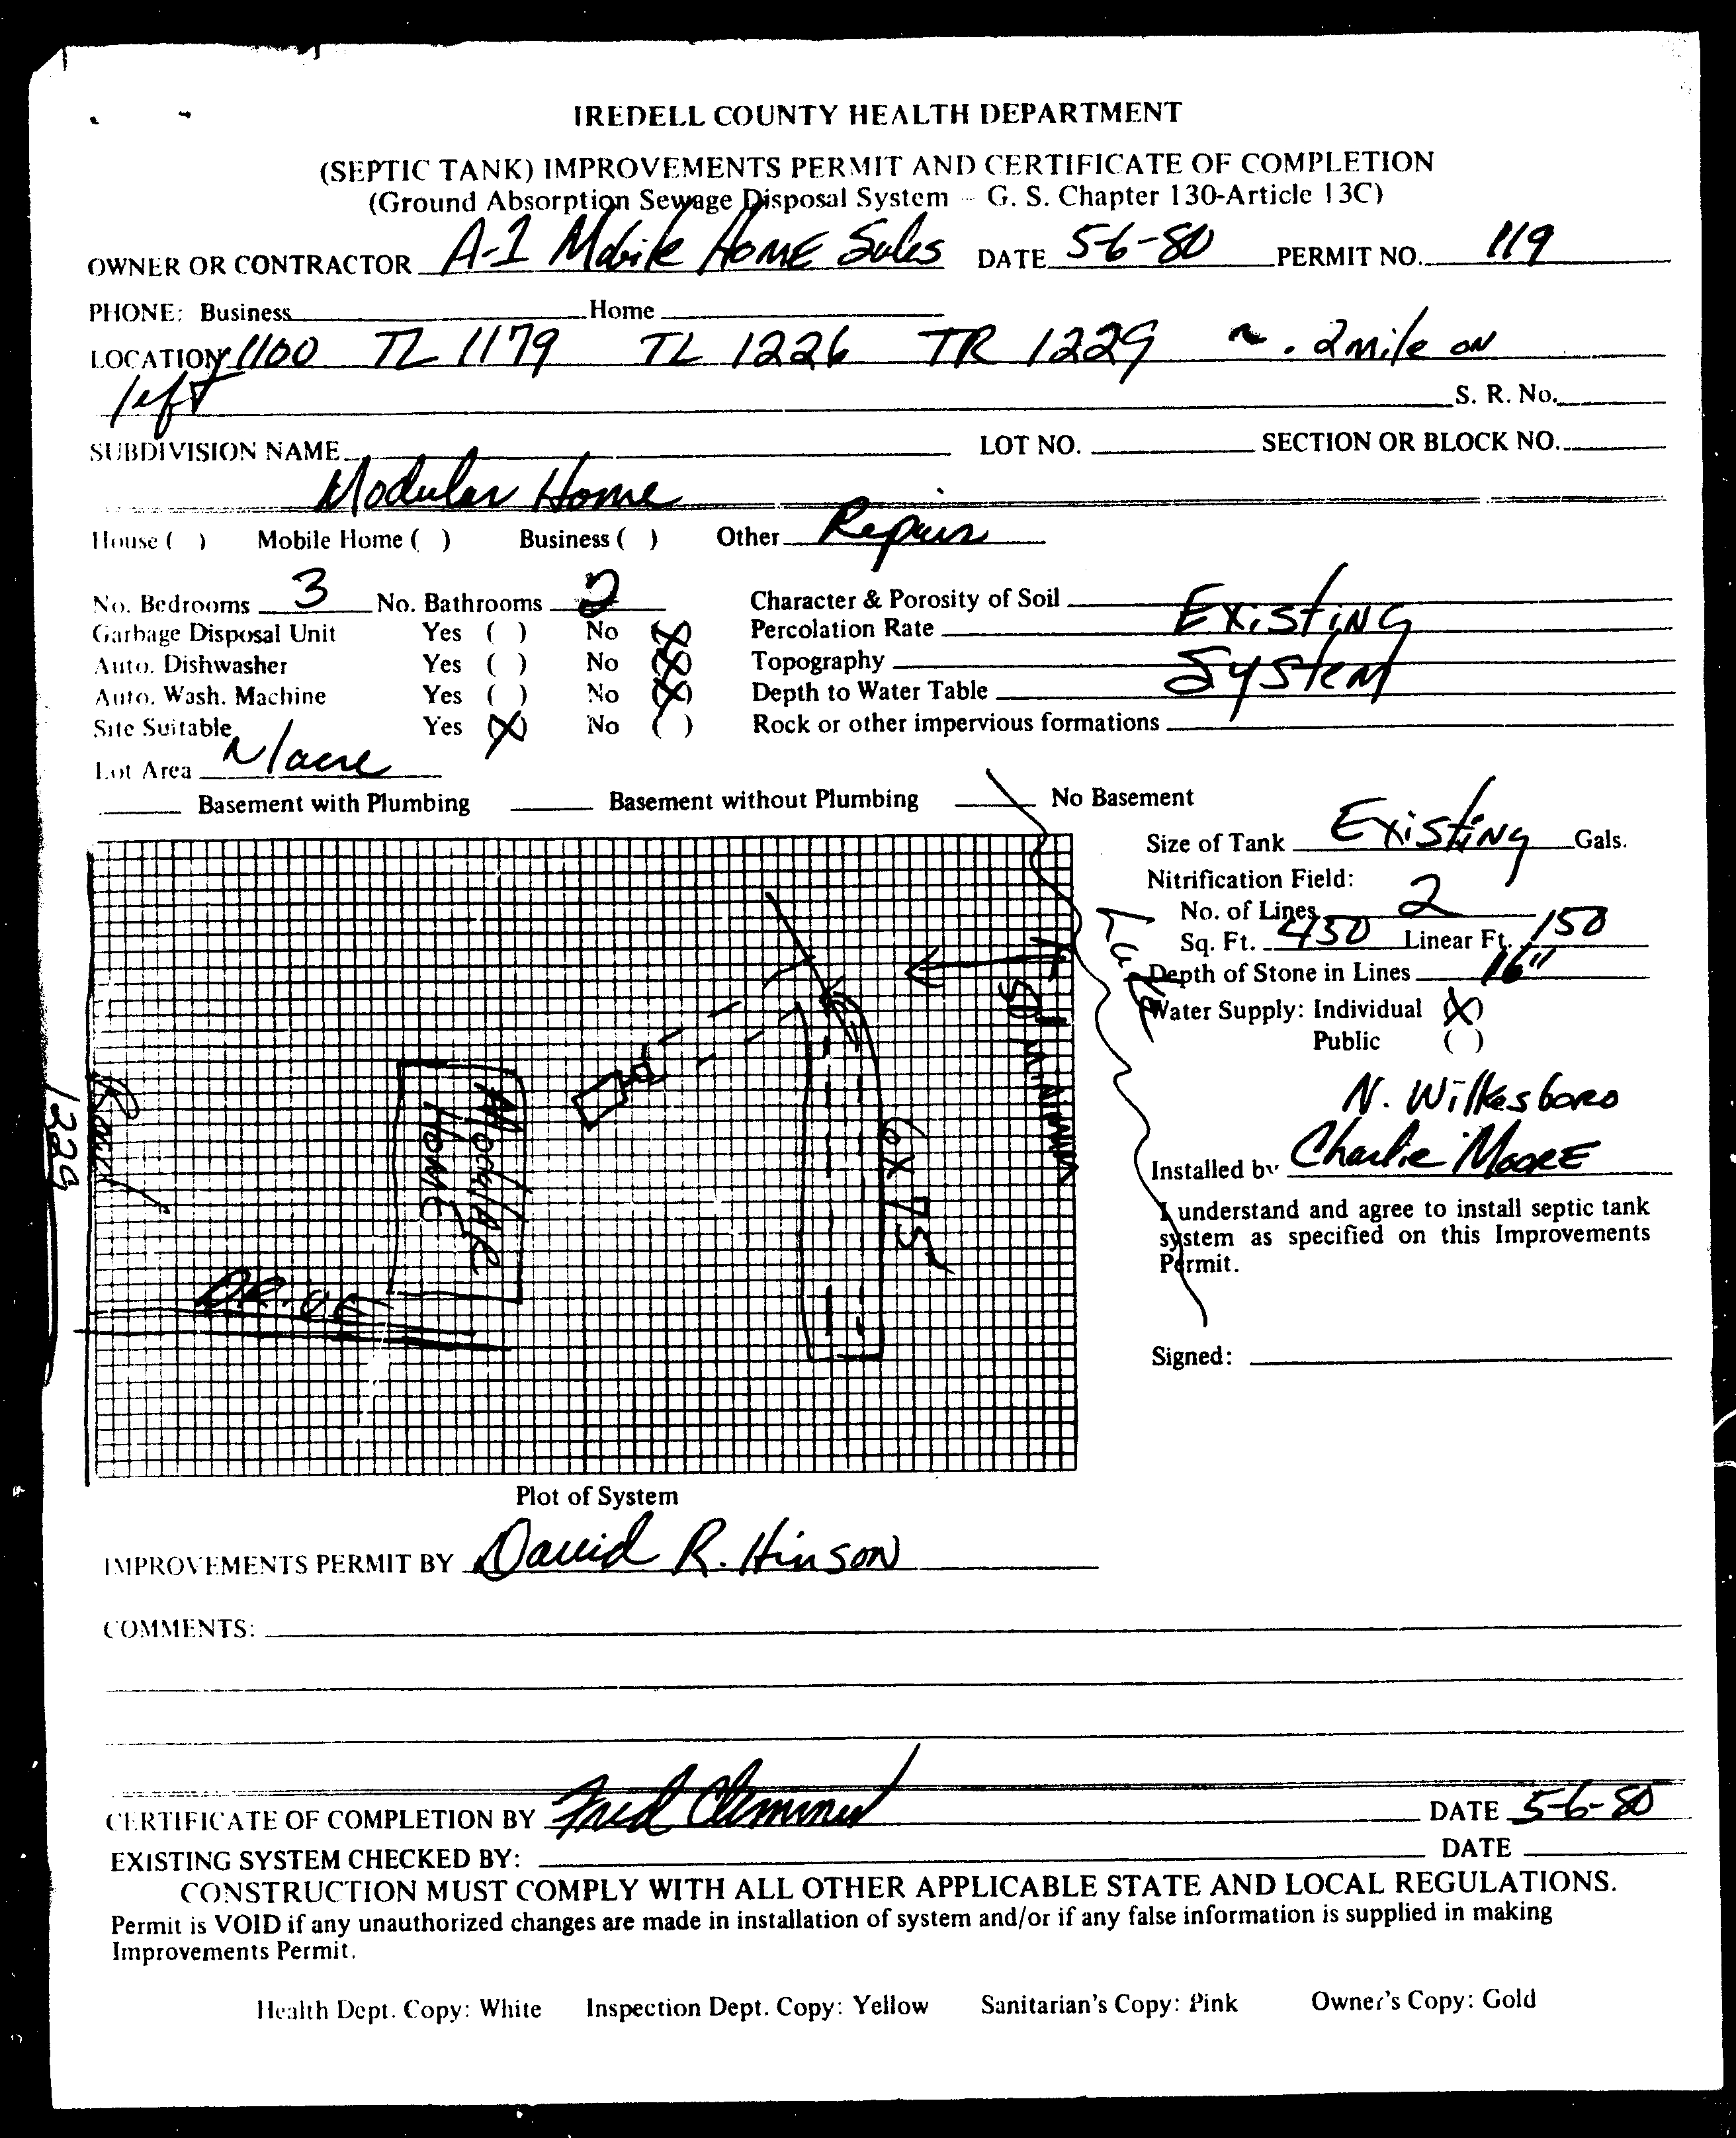 IREDELL COUNTY HEALTH DEPARTMENT
(SEPTIC TANK) IMPROVEMENTS PERMIT AND CERTIFICATE OF COMPLETION
(Ground Absorption Sewage Disposal System – G. S. Chapter 130-Article 13C)
OWNER OR CONTRACTOR A-1 Mobile Home Sales DATE 5-6-80 PERMIT NO. 119
PHONE: Business Home
LOCATION 1100 TL 1179 TL 1226 TR 1229 ~ .2 mile on
left S. R. No.
SUBDIVISION NAME LOT NO. SECTION OR BLOCK NO.
Modular Home
House ( ) Mobile Home ( ) Business ( ) Other Repair
No. Bedrooms 3 No. Bathrooms 2 Character & Porosity of Soil Existing
Garbage Disposal Unit Yes ( ) No (X) Percolation Rate
Auto. Dishwasher Yes ( ) No (X) Topography System
Auto. Wash. Machine Yes ( ) No (X) Depth to Water Table
Site Suitable Yes (X) No ( ) Rock or other impervious formations
Lot Area ~ 1 acre
Basement with Plumbing Basement without Plumbing No Basement
Size of Tank Existing Gals.
Nitrification Field:
No. of Lines 2
Sq. Ft. 450 Linear Ft. 150
Depth of Stone in Lines 16"
Water Supply: Individual (X)
Public ( )
N. Wilkesboro
Installed by Charlie Moore
I understand and agree to install septic tank
system as specified on this Improvements
Permit.
Signed:
Road
1229
Modular
Home
Drive
6 x 75'
50' Minimum
Plot of System
IMPROVEMENTS PERMIT BY David R. Hinson
COMMENTS:
CERTIFICATE OF COMPLETION BY Fred Clemmer DATE 5-6-80
EXISTING SYSTEM CHECKED BY: DATE
CONSTRUCTION MUST COMPLY WITH ALL OTHER APPLICABLE STATE AND LOCAL REGULATIONS.
Permit is VOID if any unauthorized changes are made in installation of system and/or if any false information is supplied in making
Improvements Permit.
Health Dept. Copy: White Inspection Dept. Copy: Yellow Sanitarian's Copy: Pink Owner's Copy: Gold